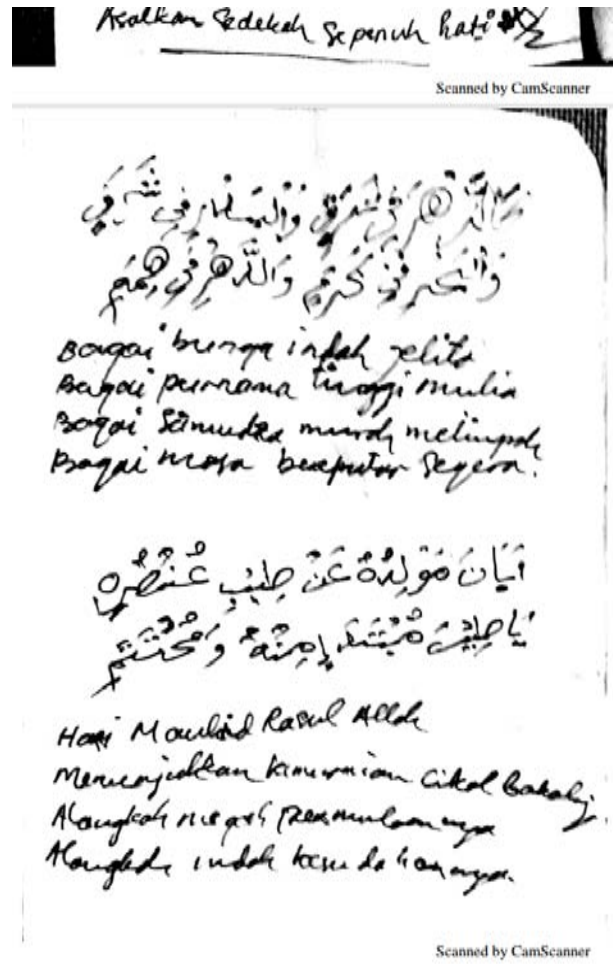 Asalkan Sedekah Sepenuh hati
Scanned by CamScanner
كَالزَّهْرِ فِي تَرَفٍ وَالْبَدْرِ فِي شَرَفٍ
وَالْبَحْرِ فِي كَرَمٍ وَالدَّهْرِ فِي هِمَمٍ
Bagai bunga indah jelita
Bagai purnama tinggi mulia
Bagai Samudra murah melimpah
Bagai masa berputar Segera.
اَبَانَ مَوْلِدُهُ عَنْ طِيْبِ عُنْصُرِهِ
يَاطِيْبَ مُبْتَدَإٍ مِنْهُ وَمُخْتَتَمٍ
Hari Maulid Rasul Allah
Menunjukkan kemurnian Cikal Bakalnya.
Alangkah megah permulaannya
Alangkah indah kesudahannya.
Scanned by CamScanner